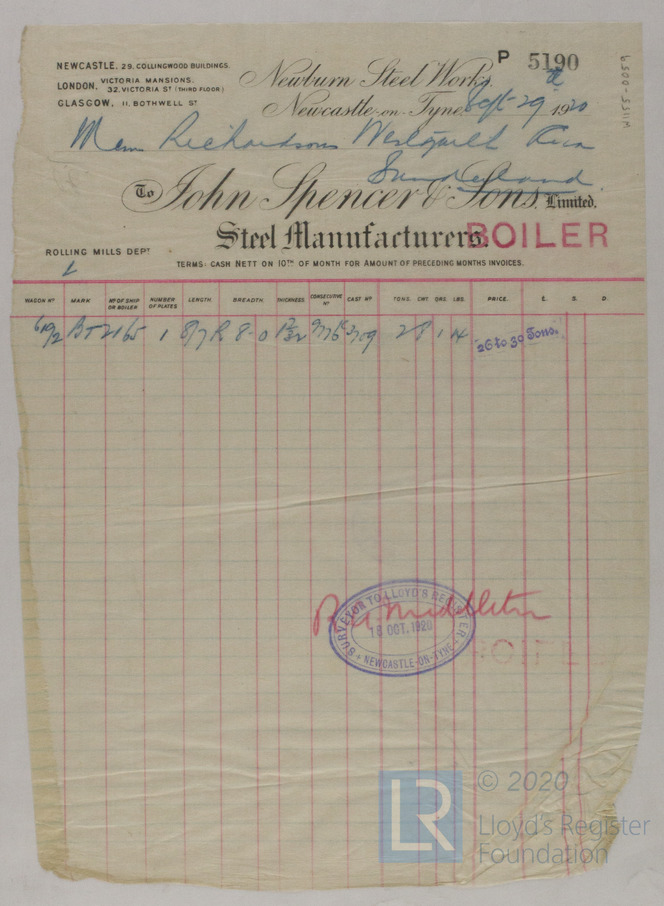 P 5190
NEWCASTLE, 29, COLLINGWOOD BUILDINGS.
LONDON, VICTORIA MANSIONS, 32, VICTORIA ST (THIRD FLOOR)
GLASGOW, 11, BOTHWELL ST
Newburn Steel Works,
Newcastle-on-Tyne, Sept 29th 1920
Messrs Richardsons Westgarth
Sunderland
To John Spencer & Sons, Limited.
Steel Manufacturers.
BOILER
ROLLING MILLS DEPT
TERMS: CASH NETT ON 10TH OF MONTH FOR AMOUNT OF PRECEDING MONTHS INVOICES.
WAGON No MARK No OF SHIP OR BOILER NUMBER OF PLATES LENGTH BREADTH THICKNESS CONSECUTIVE No CAST No TONS. CWT. QRS. LBS. PRICE. £. S. D.
BT 2165 1 8/7 R 8-0 28 1 4
26 to 30 Tons.
Middleton
SURVEYOR TO LLOYD'S REGISTER
18 OCT. 1920
NEWCASTLE-ON-TYNE
LR
© 2020
Lloyd's Register
Foundation